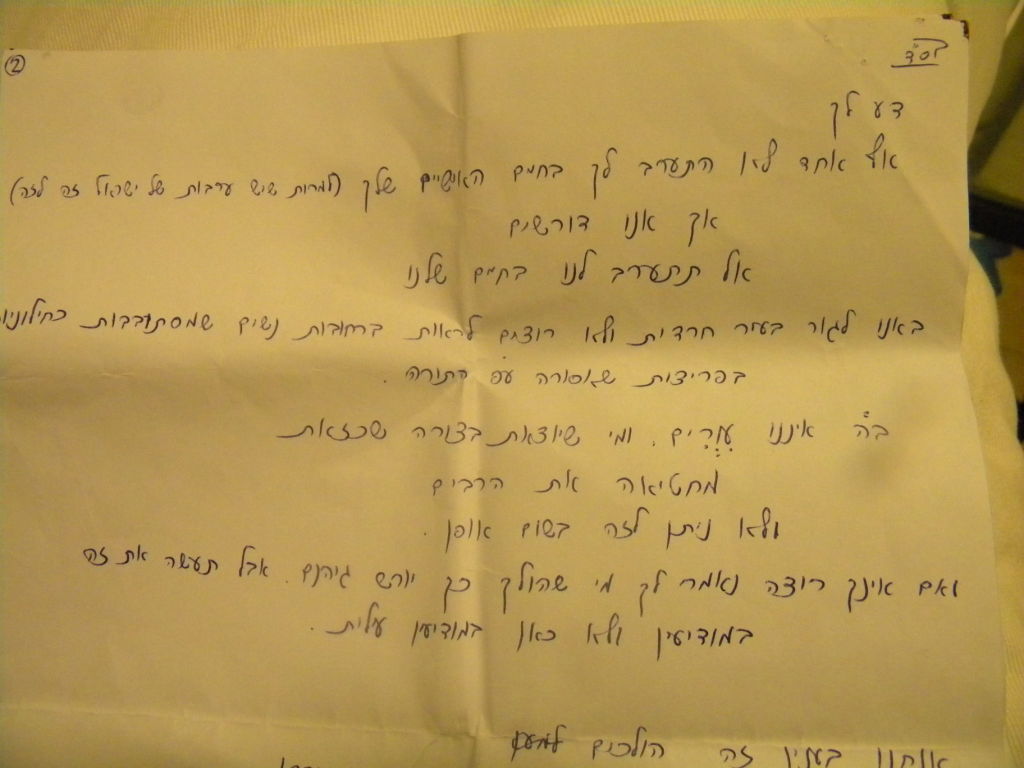 ②
בס"ד
דע לך
אף אחד לא התערב לך בחיים האישיים שלך (למרות שיש ערבות של ישראל זה לזה)
אך אנו דורשים
אל תתערב לנו בחיים שלנו
באנו לגור בעיר חרדית ולא רוצים לראות ברחובות נשים שמסתובבות כחילוניות
בפריצות שאסורה עפ התורה.
ב"ה איננו עִוְרִים. ומי שיוצאת בצורה שכזאת
מחטיאה את הרבים
ולא ניתן לזה בשום אופן.
ואם אינך רוצה נאמר לך מי שהולך כך יורש גיהנם. אבל תעשה את זה
במודיעין ולא כאן במודיעין עלית.
אנחנו בענין זה הולכים